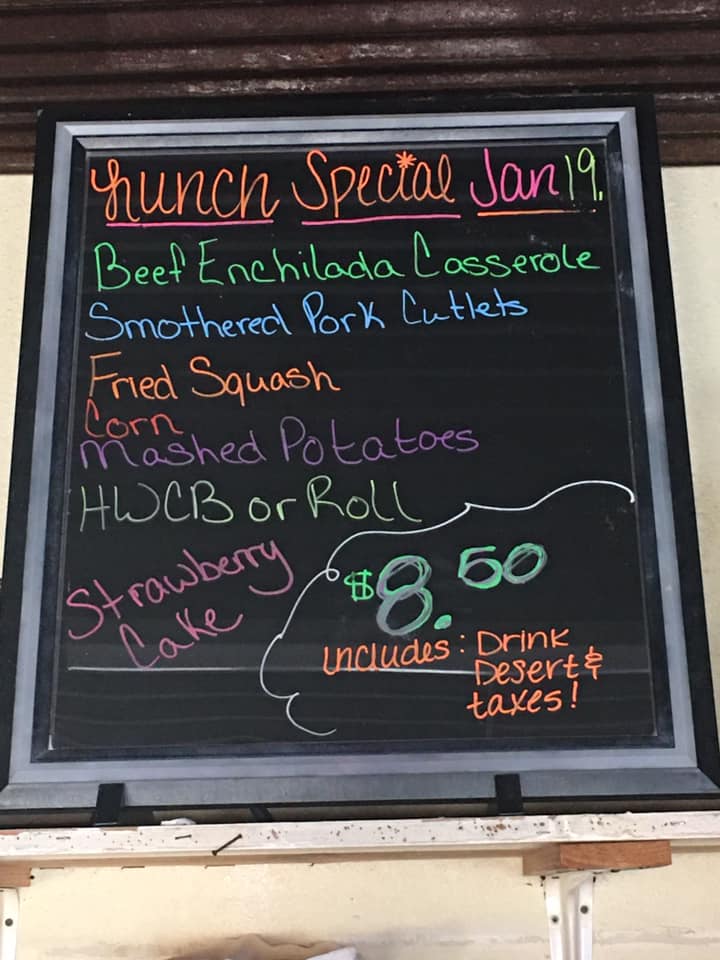 Lunch Special Jan 19.
Beef Enchilada Casserole
Smothered Pork Cutlets
Fried Squash
Corn
Mashed Potatoes
HWCB or Roll
Strawberry
Cake
$8.50
includes: Drink
Desert &
taxes!